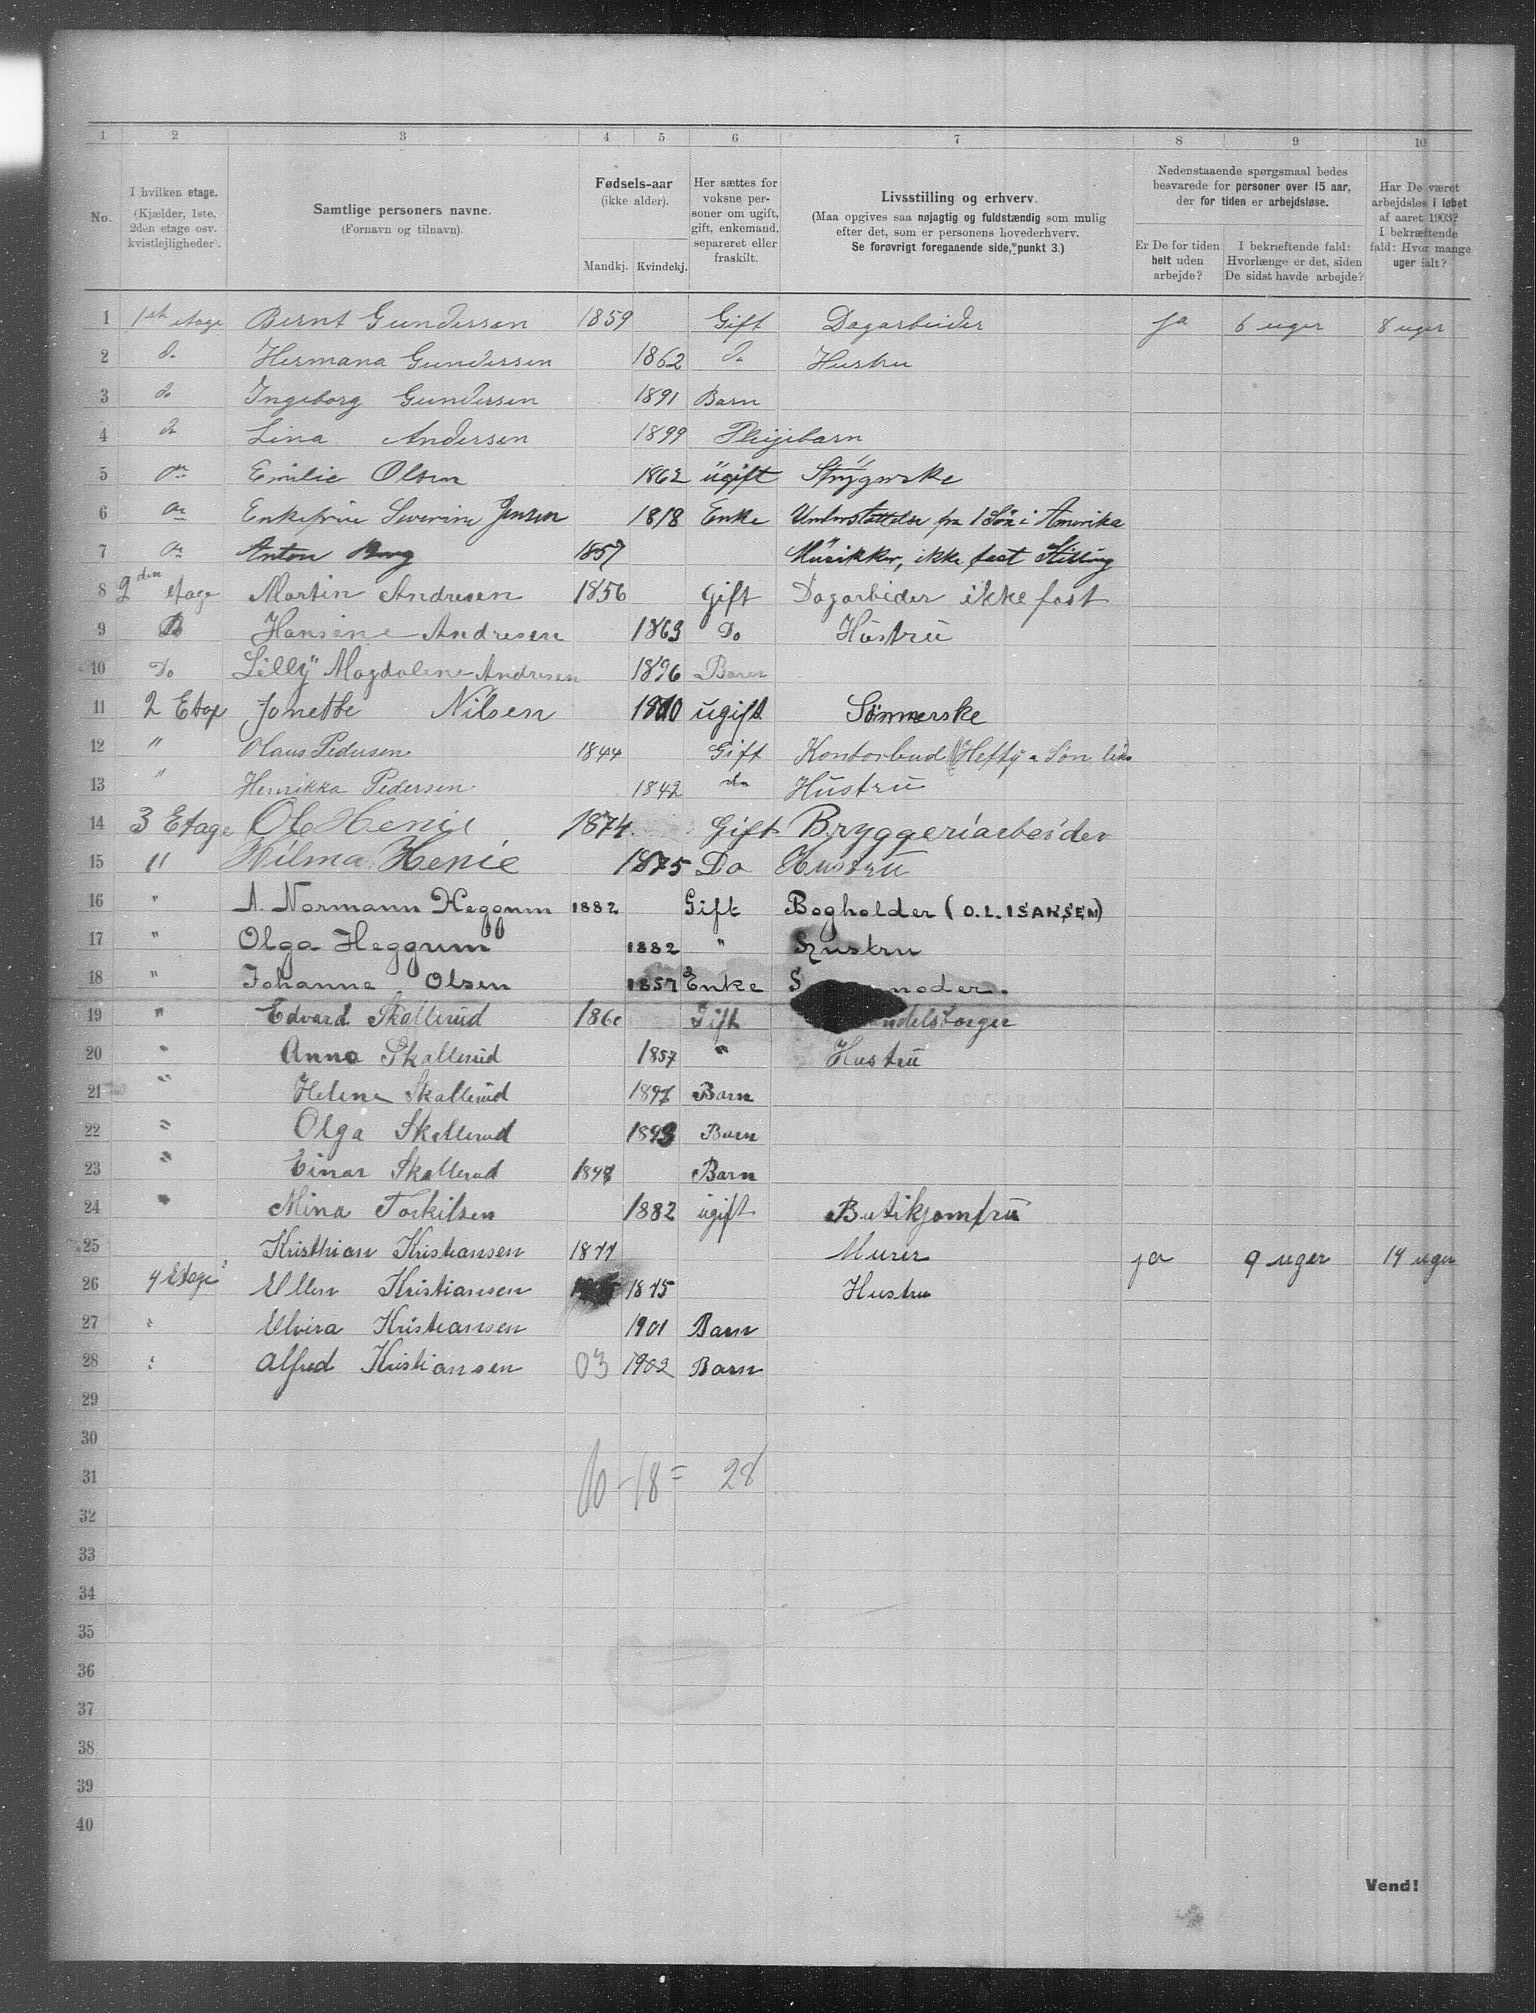 1 2 3 4 5 6 7 8 9 10
No.
I hvilken etage.
(Kjælder, 1ste,
2den etage osv.
kvistlejligheder).
Samtlige personers navne.
(Fornavn og tilnavn).
Fødsels-aar
(ikke alder).
Mandkj. Kvindekj.
Her sættes for
voksne per-
soner om ugift,
gift, enkemand,
separeret eller
fraskilt.
Livsstilling og erhverv.
(Maa opgives saa nøjagtig og fuldstændig som mulig
efter det, som er personens hovederhverv.
Se forøvrigt foregaaende side, punkt 3.)
Nedenstaaende spørgsmaal bedes
besvarede for personer over 15 aar,
der for tiden er arbejdsløse.
Er De for tiden
helt uden
arbejde?
I bekræftende fald:
Hvorlænge er det, siden
De sidst havde arbejde?
Har De været
arbejdsløs i løbet
af aaret 1903?
I bekræftende
fald: Hvor mange
uger ialt?
1 1ste etage Bernt Gundersen 1859 Gift Dagarbeider ja 6 uger 8 uger
2 do Hermana Gundersen 1862 do Hustru
3 do Ingeborg Gundersen 1891 Barn
4 do Lina Andersen 1899 Pleijebarn
5 do Emilie Olsen 1862 ugift Strygerske
6 do Enkefrue Severine Jensen 1818 Enke Understøttelse fra 1 Søn i Amerika
7 do Anton Berg 1857 Musikker, ikke fast Stilling
8 2den etage Martin Andresen 1856 gift Dagarbeider ikke fast
9 Do Hansine Andresen 1863 Do Hustru
10 Do Lilly Magdalene Andresen 1896 Barn
11 2 Etage Jonette Nilsen 1810 ugift Sömmerske
12 " Olaus Pedersen 1844 Gift Kontorbud Hefty & Søn
13 " Henrikka Pedersen 1842 do Hustru
14 3 Etage Ole Henie 1874 Gift Bryggeriarbeider
15 " Wilma Henie 1875 Do Hustru
16 " A. Normann Heggum 1882 Gift Bogholder (O. L. ISAKSEN)
17 " Olga Heggum 1882 " Hustru
18 " Johanne Olsen 1857 Enke S moder.
19 " Edvard Skallerud 186 Gift ndelsborger
20 " Anna Skallerud 1857 " Hustru
21 " Helene Skallerud 1897 Barn
22 " Olga Skallerud 1893 Barn
23 " Einar Skallerud 1897 Barn
24 " Mina Torkilsen 1882 ugift Butikjomfru
25 Kristhian Kristiansen 1877 Murer ja 9 uger 14 uger
26 4 Etage Ellen Kristiansen 1875 Hustru
27 " Elvira Kristiansen 1901 Barn
28 " Alfred Kristiansen 03 1902 Barn
29
30
31 10-18= 28
32
33
34
35
36
37
38
39
40
Vend!